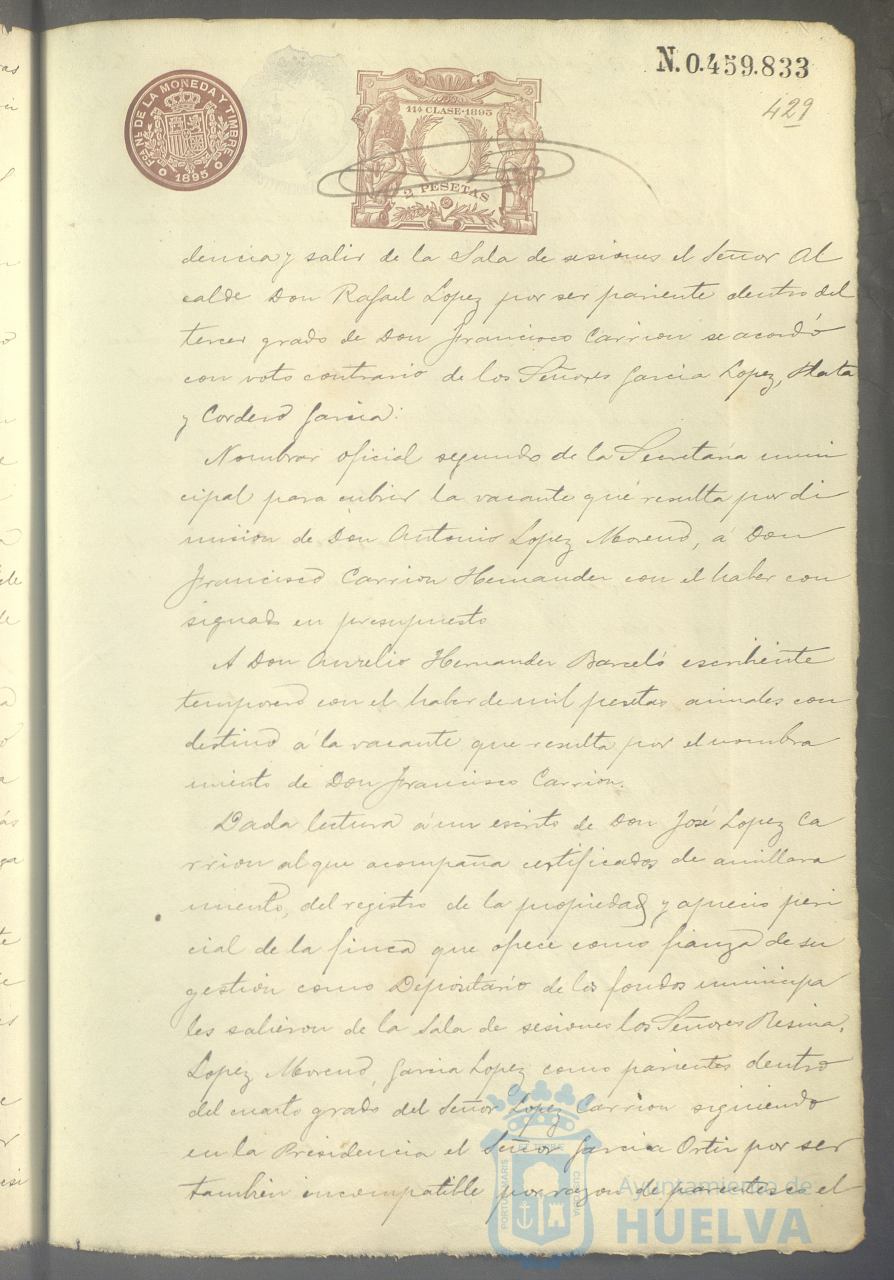 N.0.459.833
429
FCA. NL. DE LA MONEDA Y TIMBRE
1895
11ª CLASE·1895
2 PESETAS
dencia y salir de la Sala de sesiones el Señor Al
calde Don Rafael Lopez por ser pariente dentro del
tercer grado de Don Francisco Carrion se acordó
con voto contrario de los Señores Garcia Lopez, Plata
y Cordero Garcia:
Nombrar oficial segundo de la Secretaria muni
cipal para cubrir la vacante que resulta por di
mision de Don Antonio Lopez Moreno, á Don
Francisco Carrion Hernandez con el haber con
signado en presupuesto
A Don Aurelio Hernandez Barceló escribiente
temporero con el haber de mil pesetas anuales con
destino á la vacante que resulta por el nombra
miento de Don Francisco Carrion.
Dada lectura á un escrito de Don José Lopez Ca
rrion al que acompaña certificados de amillara
miento, del registro de la propiedad y aprecio peri
cial de la finca que ofece como fianza de su
gestión como Depositario de los fondos municipa
les salieron de la Sala de sesiones los Señores Resina,
Lopez Moreno, Garcia Lopez como parientes dentro
del cuarto grado del Señor Lopez Carrion siguiendo
en la Presidencia el Señor Garcia Ortiz por ser
tambien incompatible por razon de parentesco el
PORTUS MARIS
ET TERRE
CUSTODIA
Ayuntamiento de
HUELVA